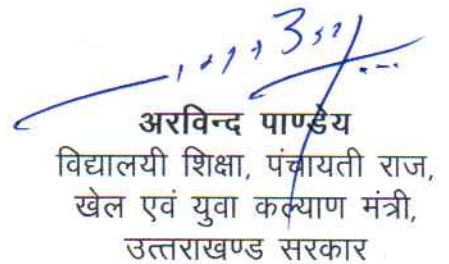 अरविन्द पाण्डेय
विद्यालयी शिक्षा, पंचायती राज,
खेल एवं युवा कल्याण मंत्री,
उत्तराखण्ड सरकार